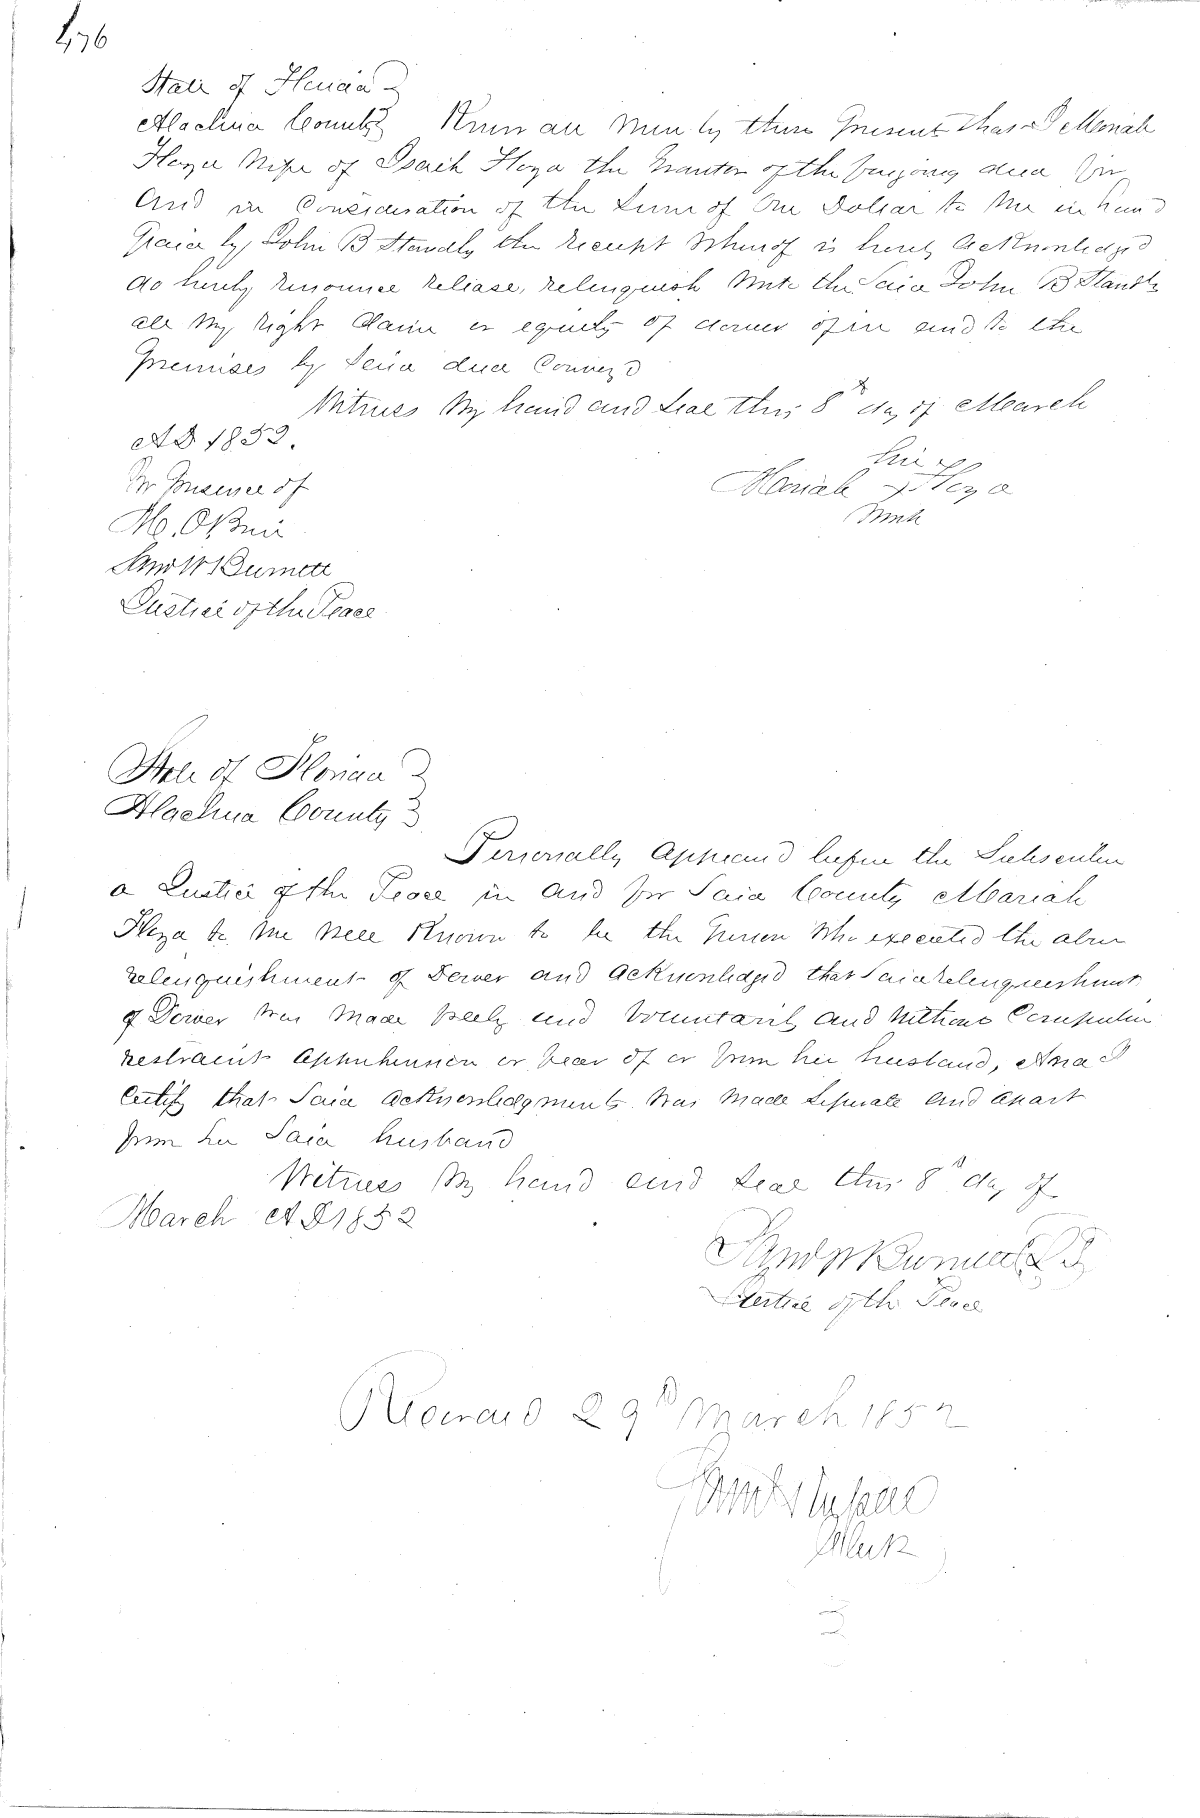 476
State of Florida
Alachua County Know all men by these Present that I Mariah
Floyd Wife of Isaih Floyd the Grantor of the foregoing deed for
And in Consideration of the Sum of One Dollar to me in hand
Paid by John B Standly the receipt Whereof is hereby Acknowledged
do hereby renounce release, relinquish unto the Said John B Standly
all my right Claim or equity of dower of in and to the
Premises by Said deed Conveyd
Witness My hand and Seal this 8th day of March
AD 1852.
In Presence of
her
Mariah x Floyd
Mark
M. O,
W Burnett
Justice of the Peace
State of Florida
Alachua County
Personally Appeard before the Subscriber
a Justice of the Peace in and for Said County Mariah
Floyd to me Well Known to be the Person Who executed the above
relinquishment of Dower and Acknowledged that Said relinquishment
of Dower Was Made freely and Voluntarily and Without Compulsion
restraint Apprehension or fear of or from her husband, And I
Certify that Said Acknowledgments Was Made Seperate and Apart
from her Said husband
Witness My hand and Seal this 8th day of
March AD 1852
W Burnett
Justice of the Peace
Recorded 29th March 1852
Clerk